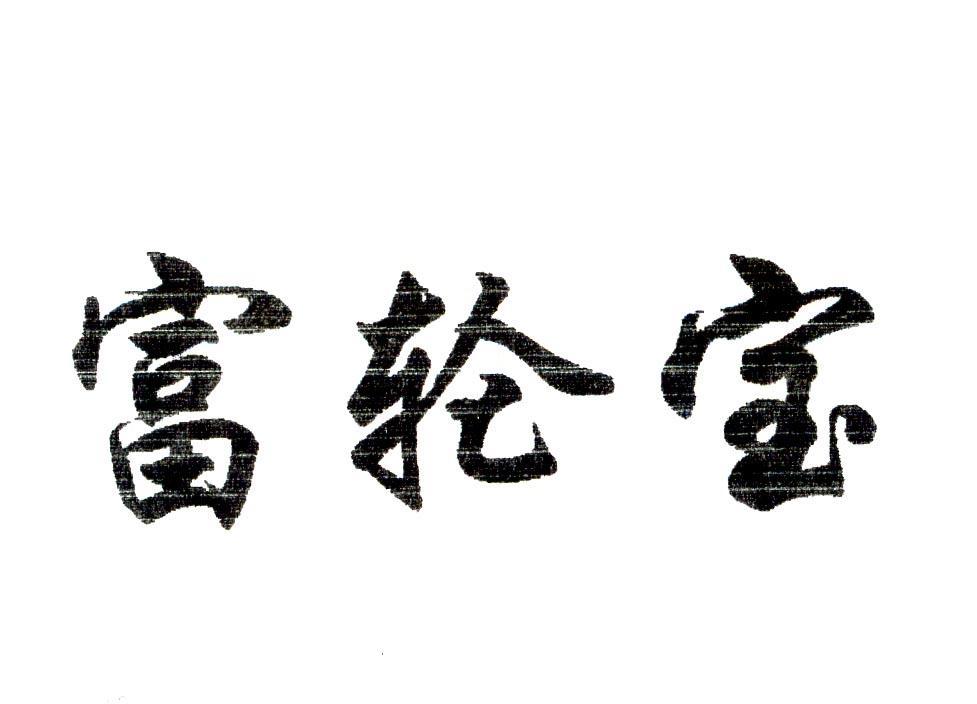 富轮宝